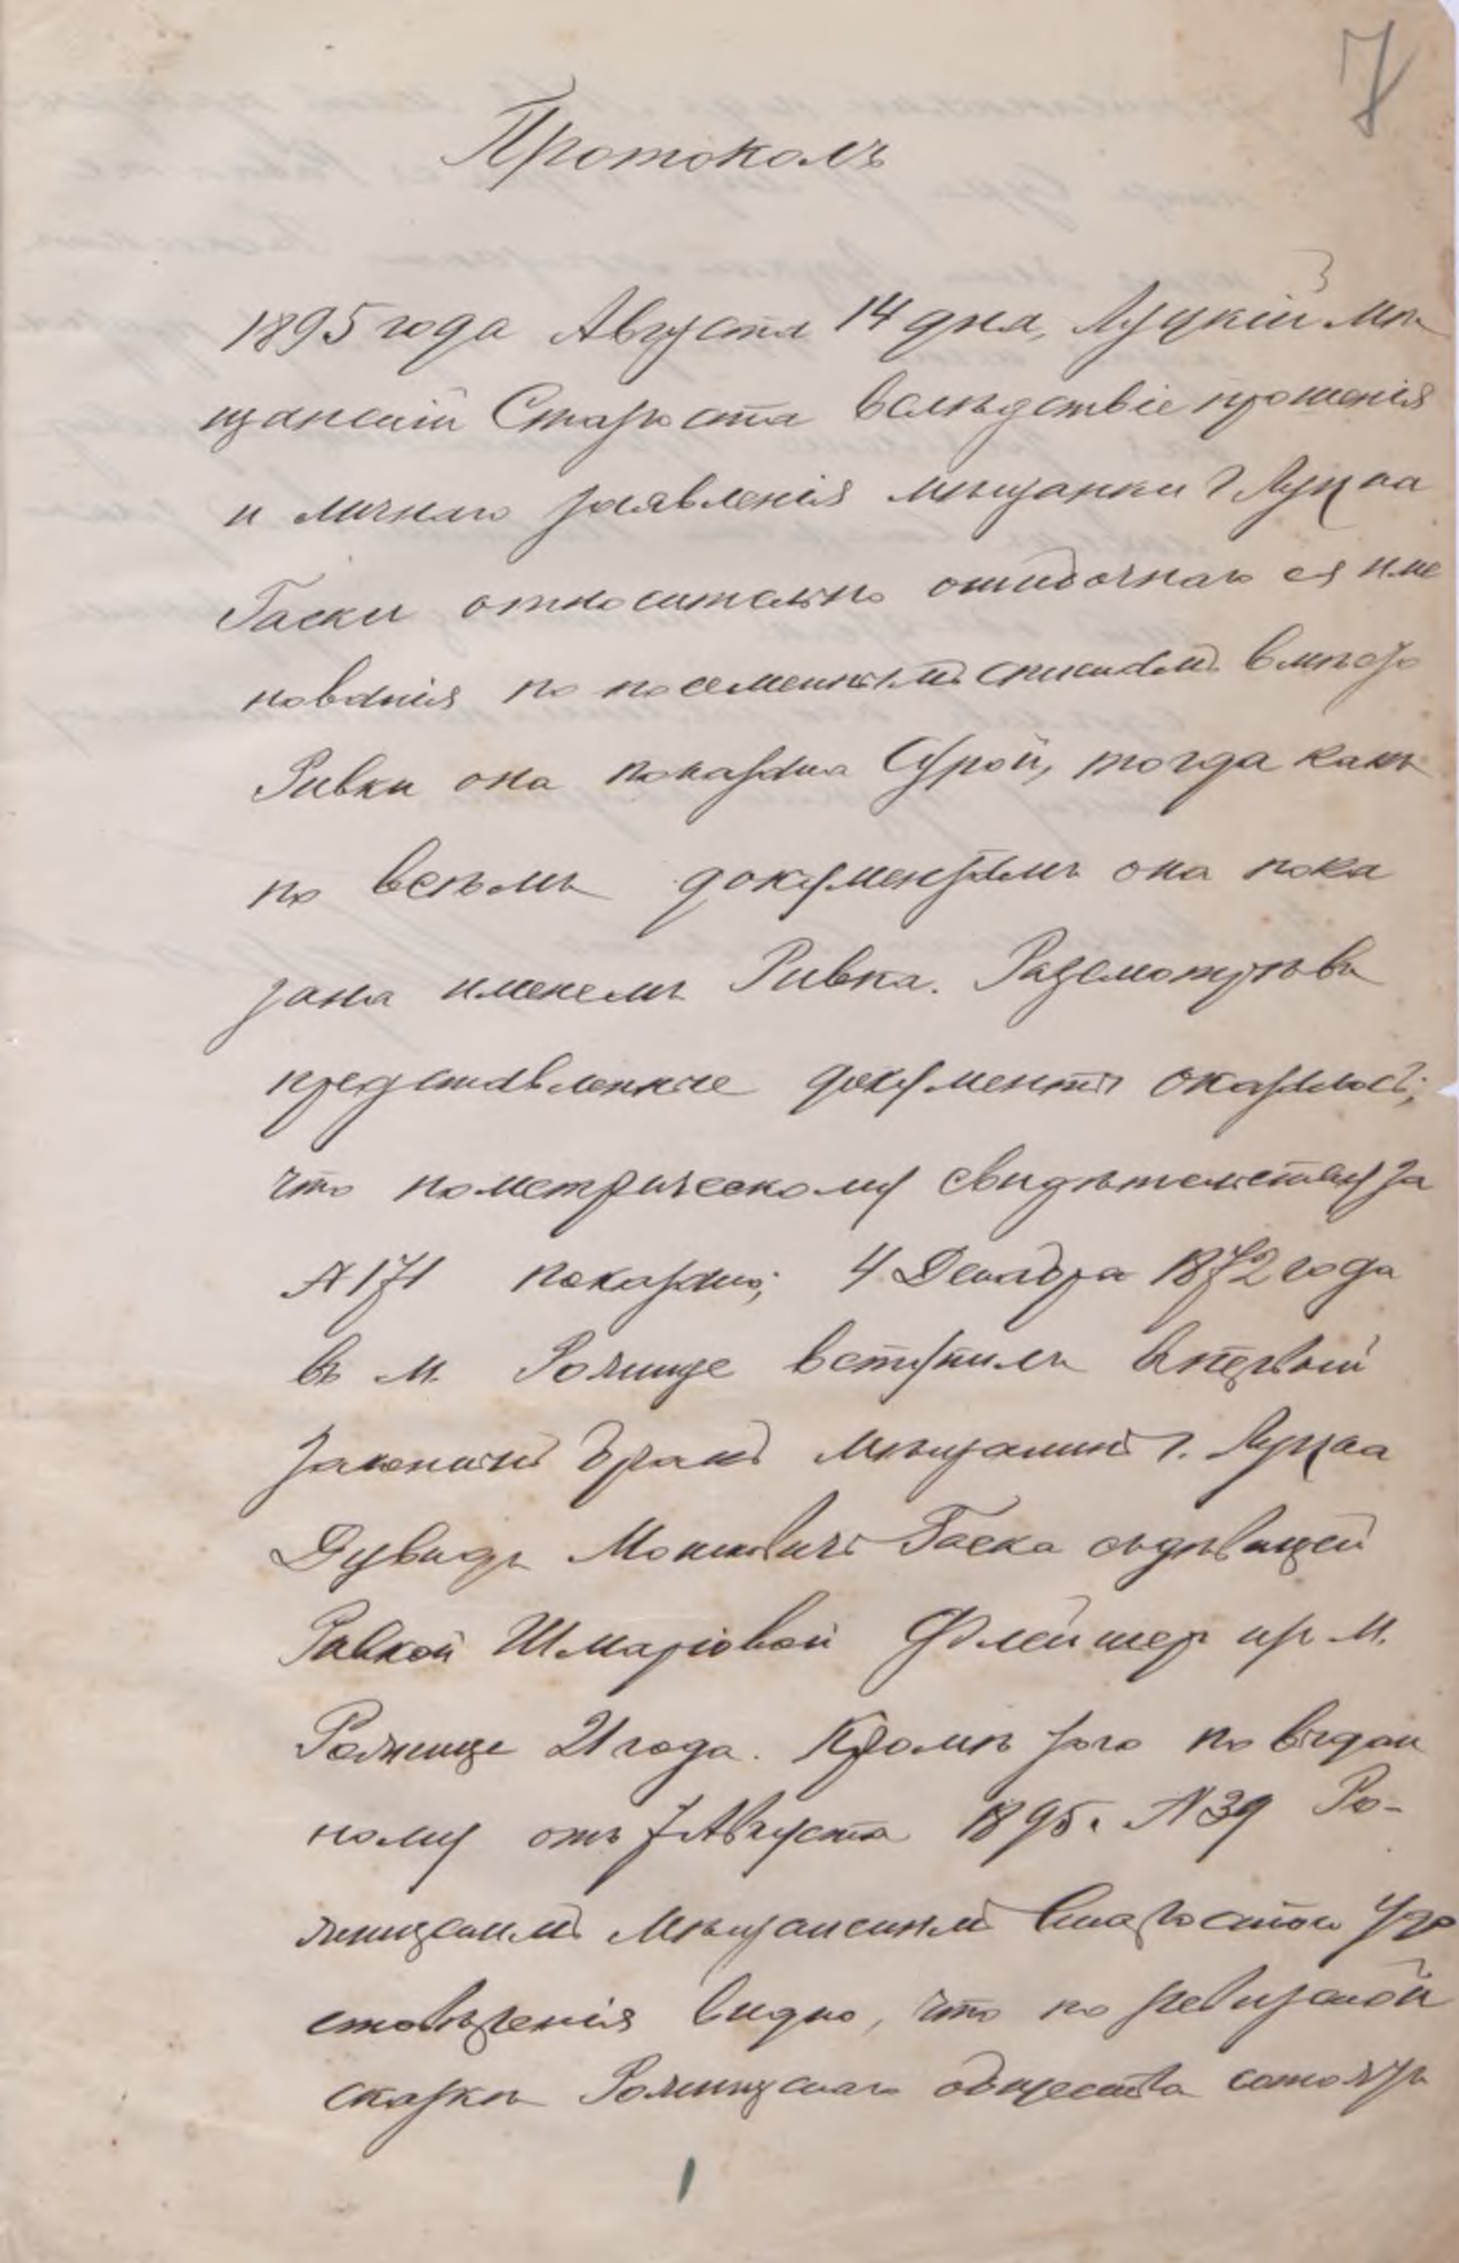 7
Протоколъ
1895 года Августа 14 дня, Луцкій мѣ
щанскій Староста вслѣдствіе прошенія
и личнаго заявленія мѣщанки г Луцка
Гаски относительно ошибочнаго ея име
нованія по посемейнымъ спискамъ вмѣсто
Ривки она показана Сурой, тогда какъ
по всѣмъ документамъ она пока
зана именемъ Ривка. Разсмотрѣвъ
представленные документы оказалось;
что по метрическому свидѣтельству за
№ 171 показано; 4 Декабря 1872 года
въ м. Рожище вступилъ въ первый
законный бракъ мѣщанинъ г. Луцка
Дувидъ Мошковичъ Гаска съ дѣвицей
Равкой Шмаріовой Флейшер изъ м.
Рожище 21 года. Кромѣ того по выдан
ному отъ 7 Августа 1895 г. № 39 Ро-
жищскимъ Мѣщанскимъ Старостою Удо
стовѣренія видно, что по ревизской
сказкѣ Рожищскаго общества